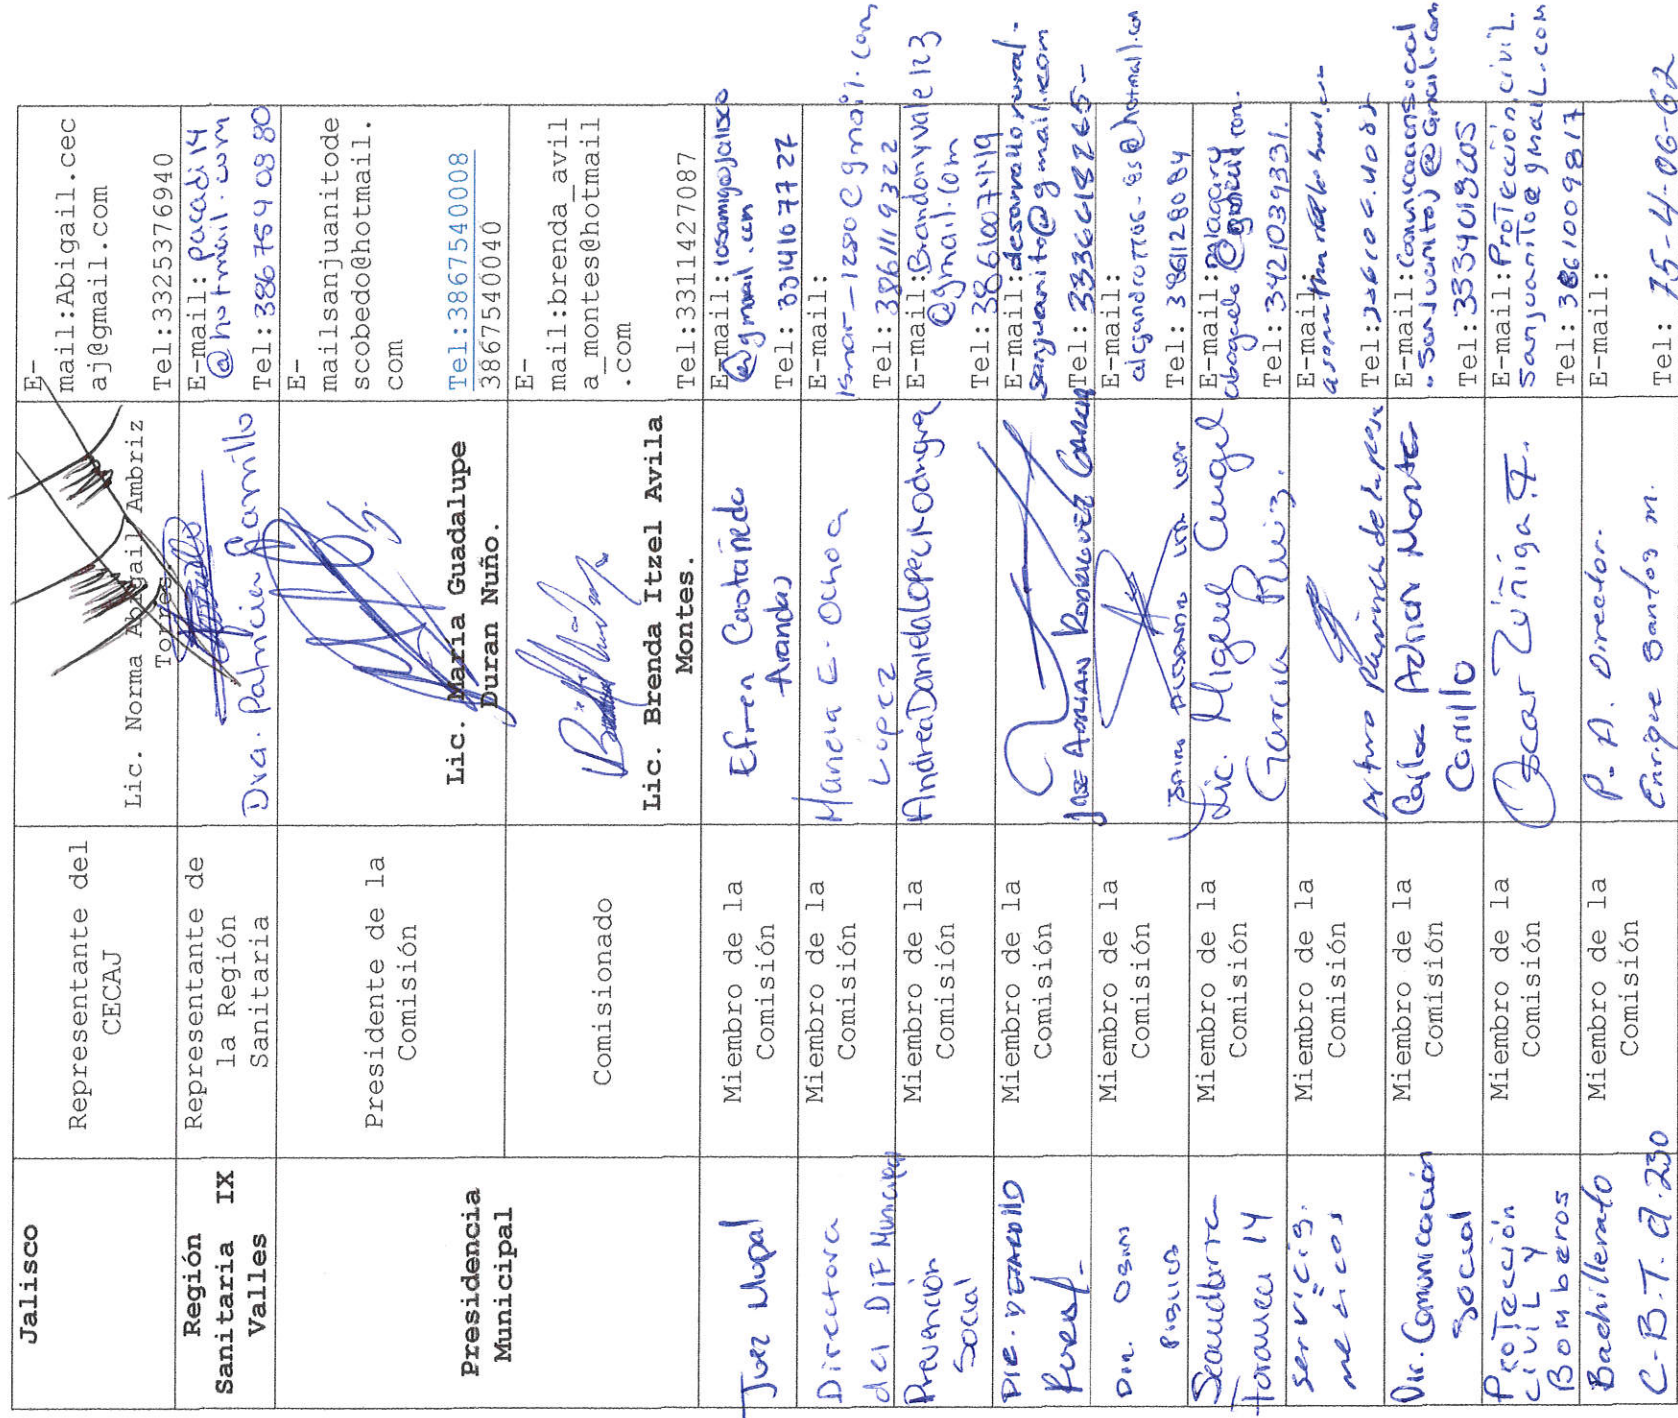 Jalisco
Representante del
CECAJ
Lic. Norma Abigail Ambriz
Torres.
E-
mail:Abigail.cec
aj@gmail.com
Tel:3325376940
Región
Sanitaria IX
Valles
Representante de
la Región
Sanitaria
Dra. Patricia Carrillo
E-mail: pacadi14
@hotmail.com
Tel:386 754 08 80
Presidencia
Municipal
Presidente de la
Comisión
Lic. Maria Guadalupe
Duran Nuño.
E-
mailsanjuanitode
scobedo@hotmail.
com
Tel:3867540008
3867540040
Comisionado
Lic. Brenda Itzel Avila
Montes.
E-
mail:brenda_avil
a_montes@hotmail
.com
Tel:3311427087
Juez Mupal
Miembro de la
Comisión
Efren Castañeda
Arandas
E-mail: losamigosjalisco
@gmail.com
Tel: 3314167727
Directora
del DIF Municipal
Miembro de la
Comisión
Maricia E. Ochoa
López
E-mail:
@gmail.com
Tel: 3861119322
Prevención
Social
Miembro de la
Comisión
Andrea Daniela Lopez Rodriguez
E-mail: Brandonyvale123
@gmail.com
Tel: 3861007449
Dir. Desarrollo
Rural-
Miembro de la
Comisión
Jose Adrian Rodriguez Garcia
E-mail: desarrollorural-
sanjuanito@gmail.com
Tel: 3336618265-
Dir. Obras
Publicas
Miembro de la
Comisión
E-mail:
@hotmail.com
Tel: 3861128084
Secundaria
Foranea 14
Miembro de la
Comisión
Lic. Miguel Angel
Garcia Ruiz.
E-mail:
Tel: 3421039331.
Servicios
medicos
Miembro de la
Comisión
Arturo
de la
E-mail:
Tel:
Dir. Comunicacion
Social
Miembro de la
Comisión
Carlos Adrian Montes
Carrillo
E-mail: Comunicacionsocial
.sanjuanito@Gmail.com
Tel: 3334019205
ProTección
civiL y
Bomberos
Miembro de la
Comisión
Oscar Zúñiga F.
E-mail: ProTeccion.civiL.
Sanjuanito@gmaiL.com
Tel: 3861009817
Bachillerato
C-B.T.a.230
Miembro de la
Comisión
P.A. Director.
Enrique Santos m.
E-mail:
Tel: 75-4-06-62